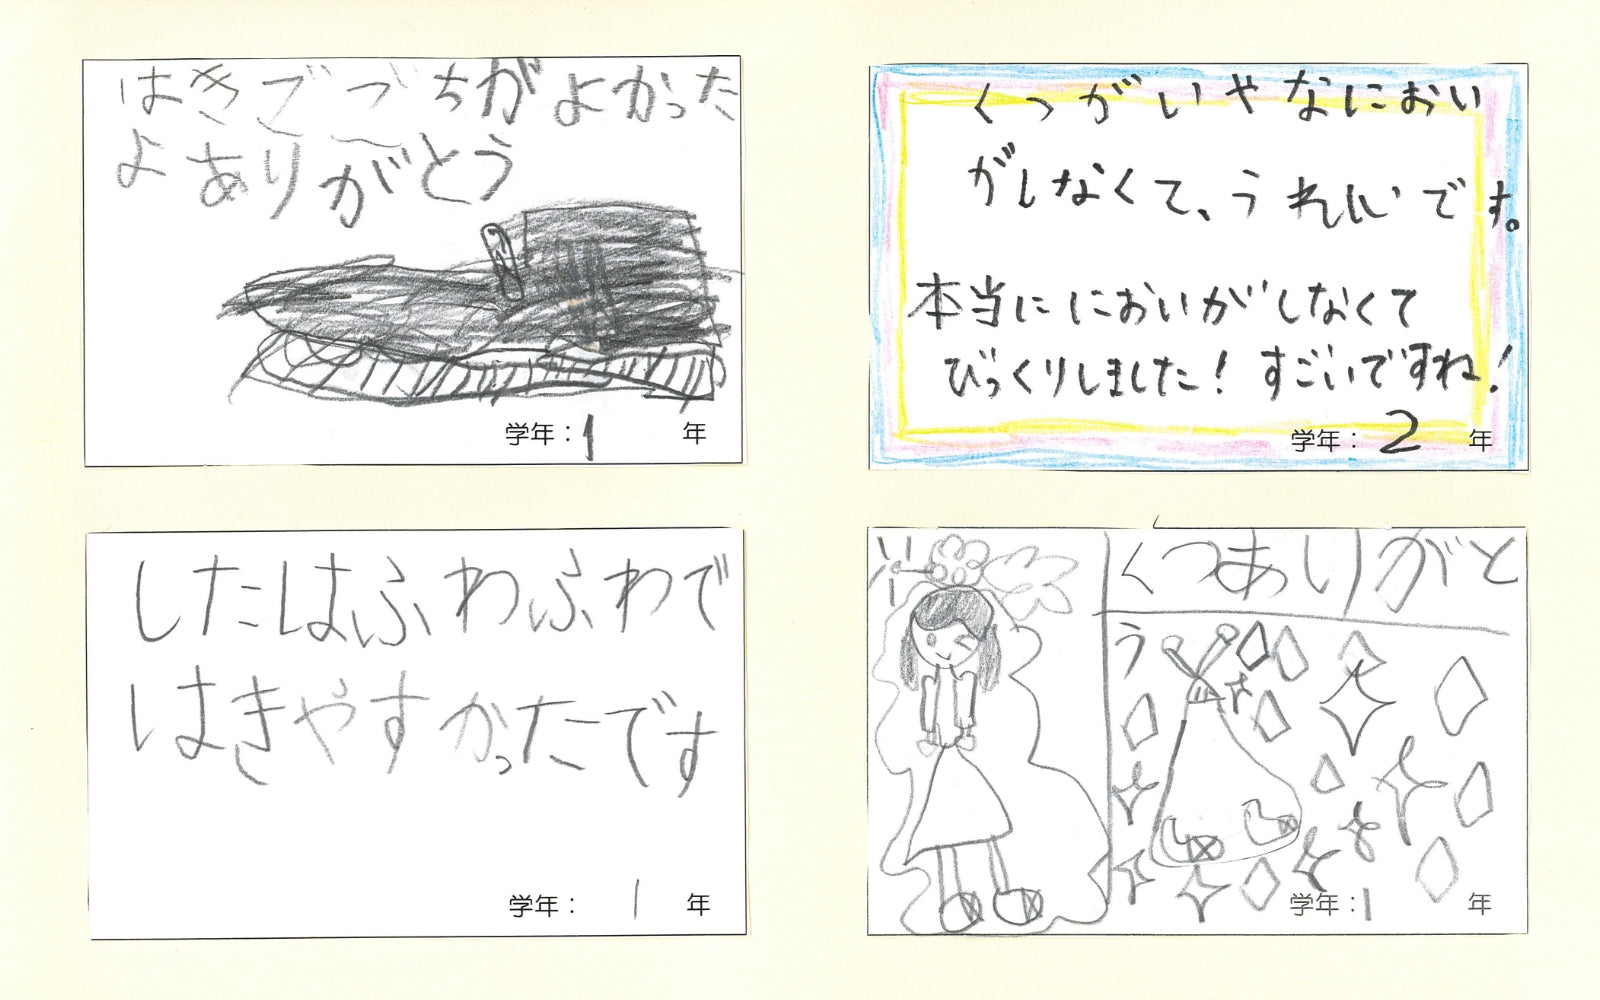 はきごごちがよかった
よありがとう
学年：1 年
くつがいやなにおい
がしなくて、うれしいです。
本当ににおいがしなくて
びっくりしました！すごいですね！
学年：2 年
したはふわふわで
はきやすかったです
学年：1 年
くつありがと
う
学年：1 年